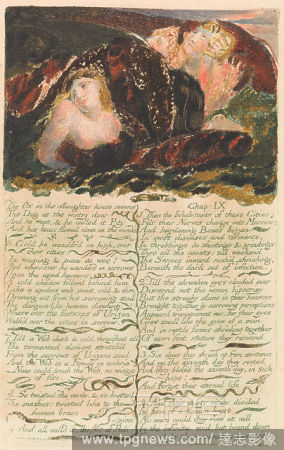 The Ox in the slaughter house moans
The Dog at the wintry door
And he wept, & he called it Pity
And his tears flowed down on the winds
5 Cold he wander'd on high, over
their cities
In weeping & pain & woe!
And where-ever he wander'd in sorrows
Upon the aged heavens
A cold shadow follow'd behind him
Like a spiders web, moist, cold, & dim
Drawing out from his sorrowing soul
The dungeon-like heaven dividing
Where ever the footsteps of Urizen
Walk'd over the cities in sorrow.
6 Till a Web dark & cold, throughout all
The tormented element stretch'd
From the sorrows of Urizens soul
And the Web is a Female in embrio
None could break the Web, no wings
of fire.
7 So twisted the cords, & so knotted
The meshes: twisted like to the
human brain
8 And all calld it, The Net of Religion
Chap: IX
1 Then the Inhabitants of those Cities:
Felt their Nerves change into Marrow
And hardening Bones began
In swift diseases and torments,
In throbbings & shootings & grindings
Thro' all the coasts; till weaken'd
The Senses inward rush'd shrinking,
Beneath the dark net of infection.
2 Till the shrunken eyes clouded over
Discernd not the woven hipocrisy
But the streaky slime in their heavens
Brought together by narrowing perceptions
Appeard transparent air; for their eyes
Grew small like the eyes of a man
And in reptile forms shrinking together
Of seven feet stature they remaind
3 Six days they shrunk up from existence
And on the seventh day they rested
And they bless'd the seventh day, in sick
hope:
And forgot their eternal life
4 And their thirty cities divided
In form of a human heart
No more could they rise at will
In the infinite void, but bound down
www.tpgnews.com / 達志影像